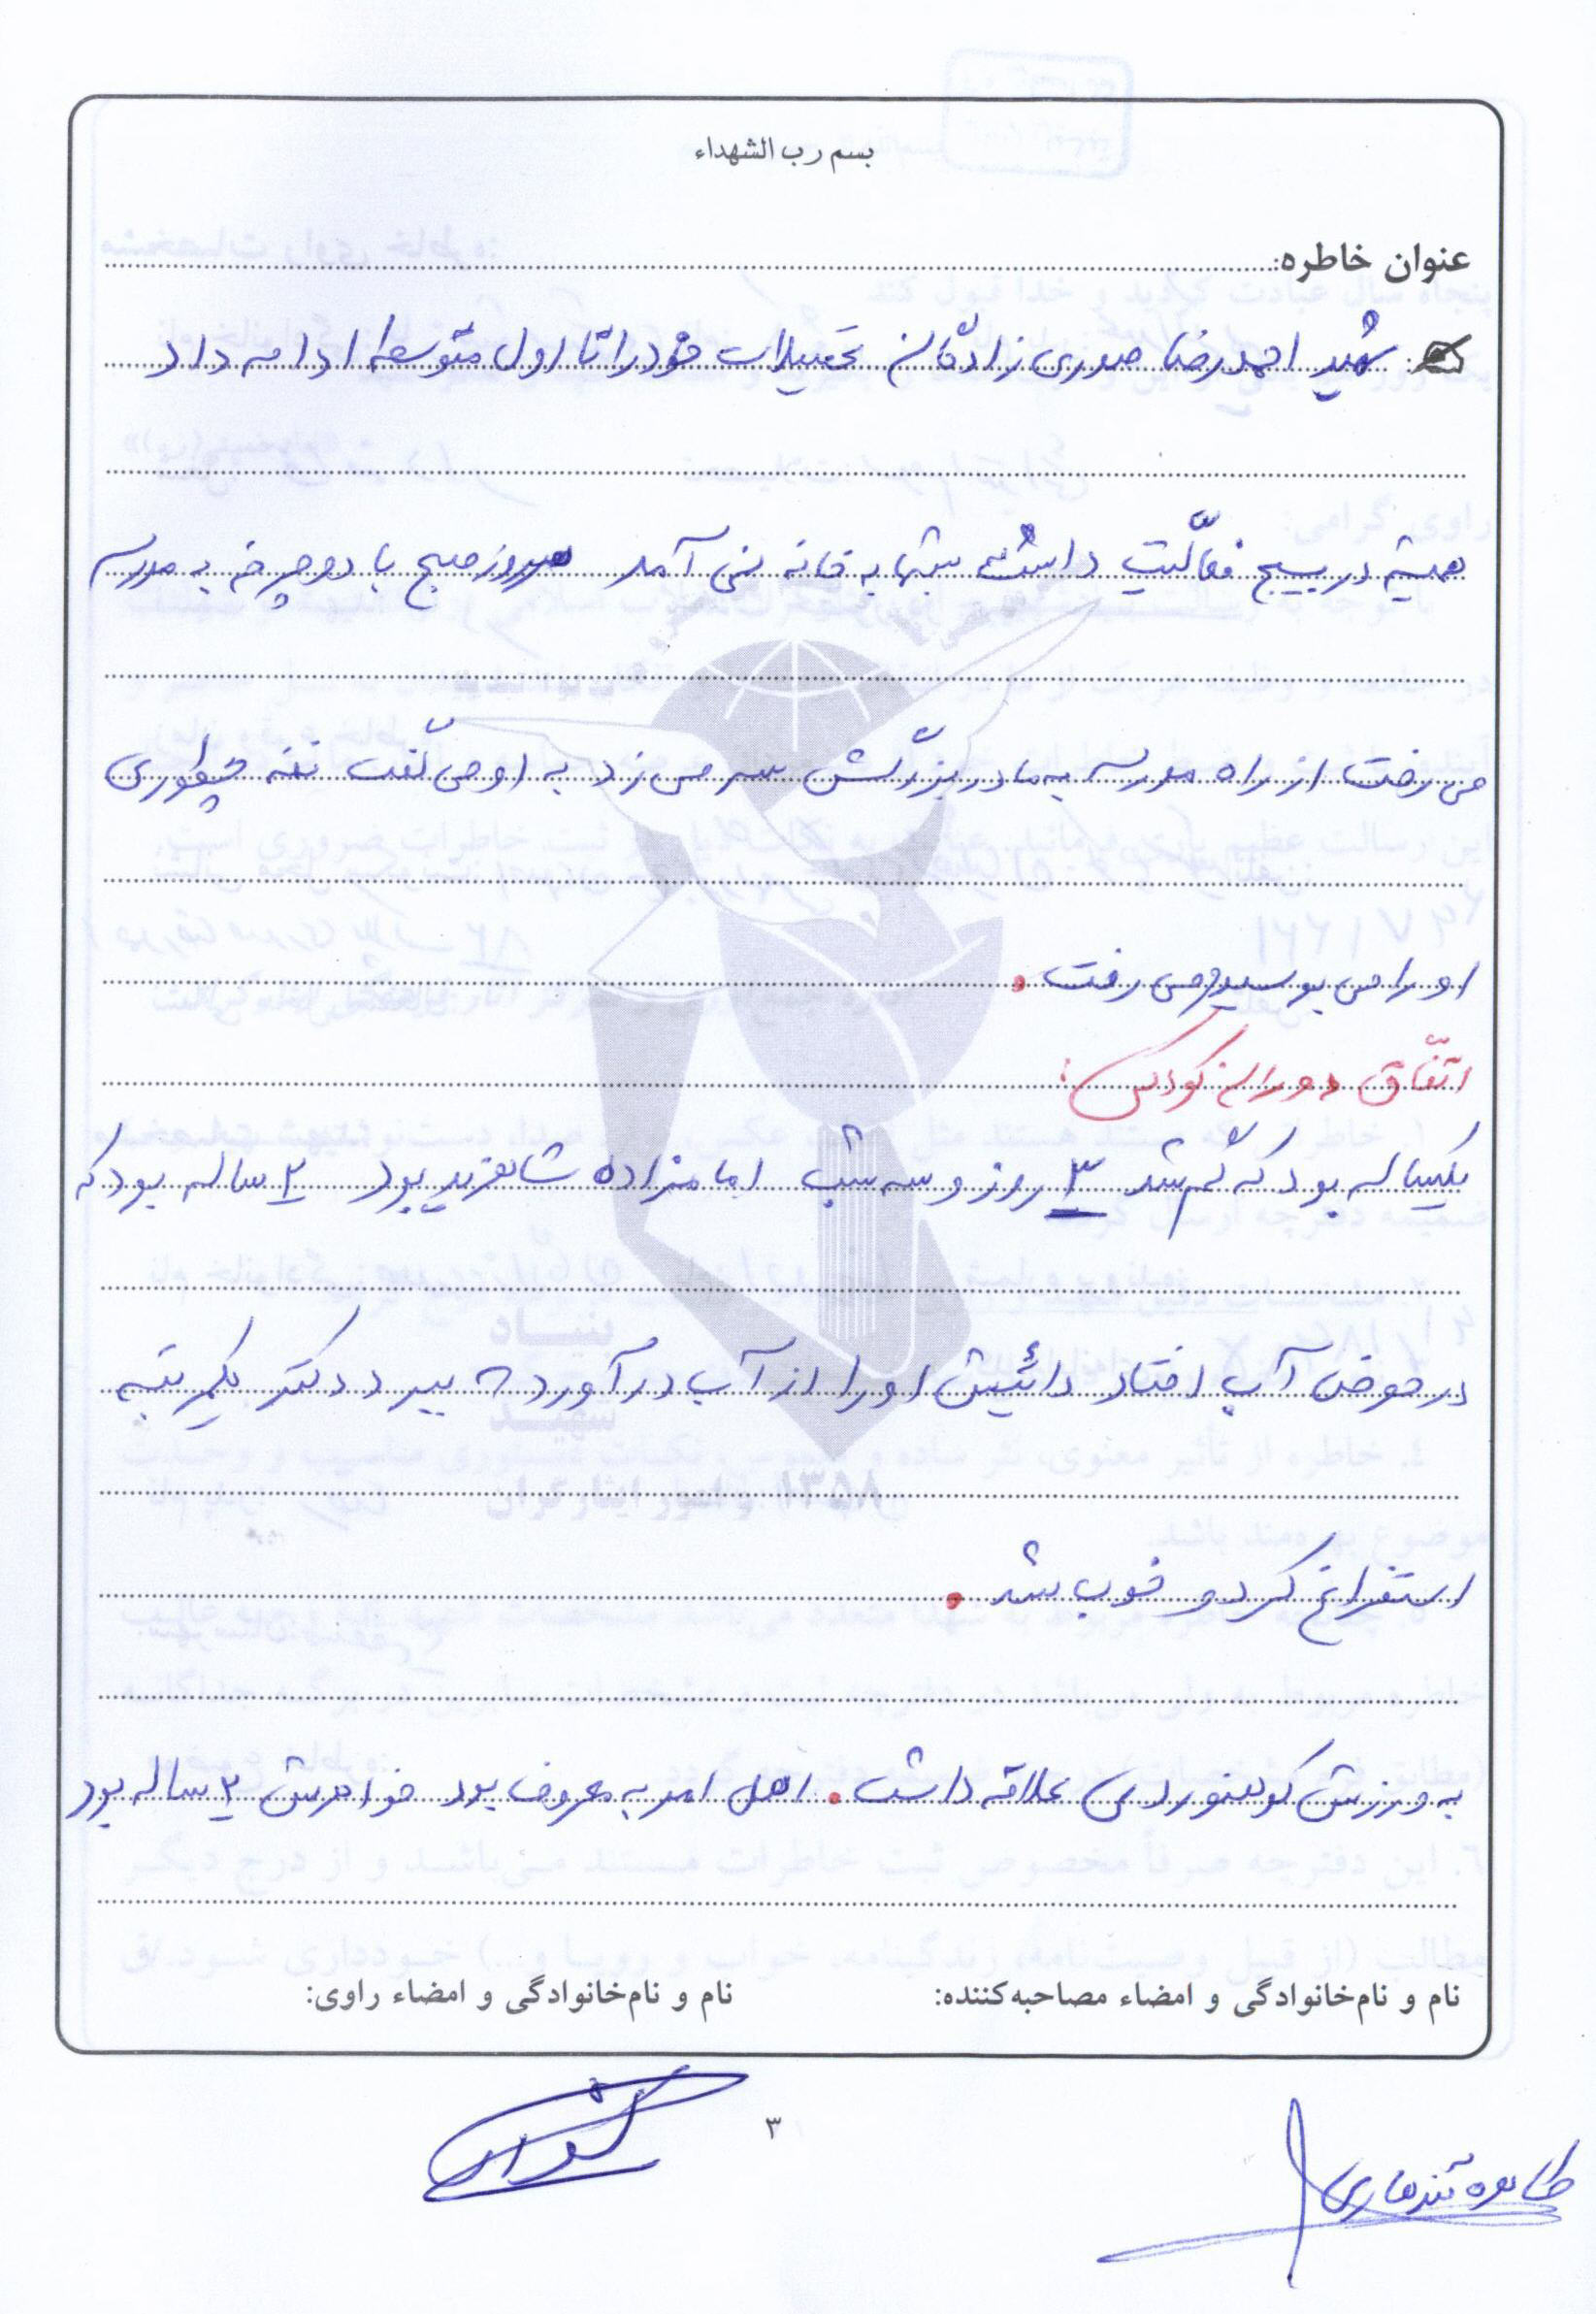 بسم رب الشهداء
عنوان خاطره:
شهید احمدرضا صدری زادگان تحصیلات خود را تا اول متوسطه ادامه داد
همیشه در بسیج فعّالیت داشت شبها به خانه نمی آمد هرروز صبح با دوچرخه به مدرسه
می رفت از راه مدرسه به مادربزرگش سر می زد به او می گفت ننه چطوری
او را می بوسید و می رفت.
اتفّاق دوران کودکی:
یکساله بود که گم شد ۳ روز و سه شب امامزاده شاهزید بود ۲ ساله بود که
در حوض آب افتاد دائیش او را از آب درآورد ببرد دکتر یکمرتبه
استفراغ کرد و خوب شد.
به ورزش کوهنوردی علاقه داشت. اهل امر به معروف بود خواهرش ۲ ساله بود
نام و نام‌خانوادگی و امضاء مصاحبه‌کننده:
نام و نام‌خانوادگی و امضاء راوی:
۳
طاهره قندهاری